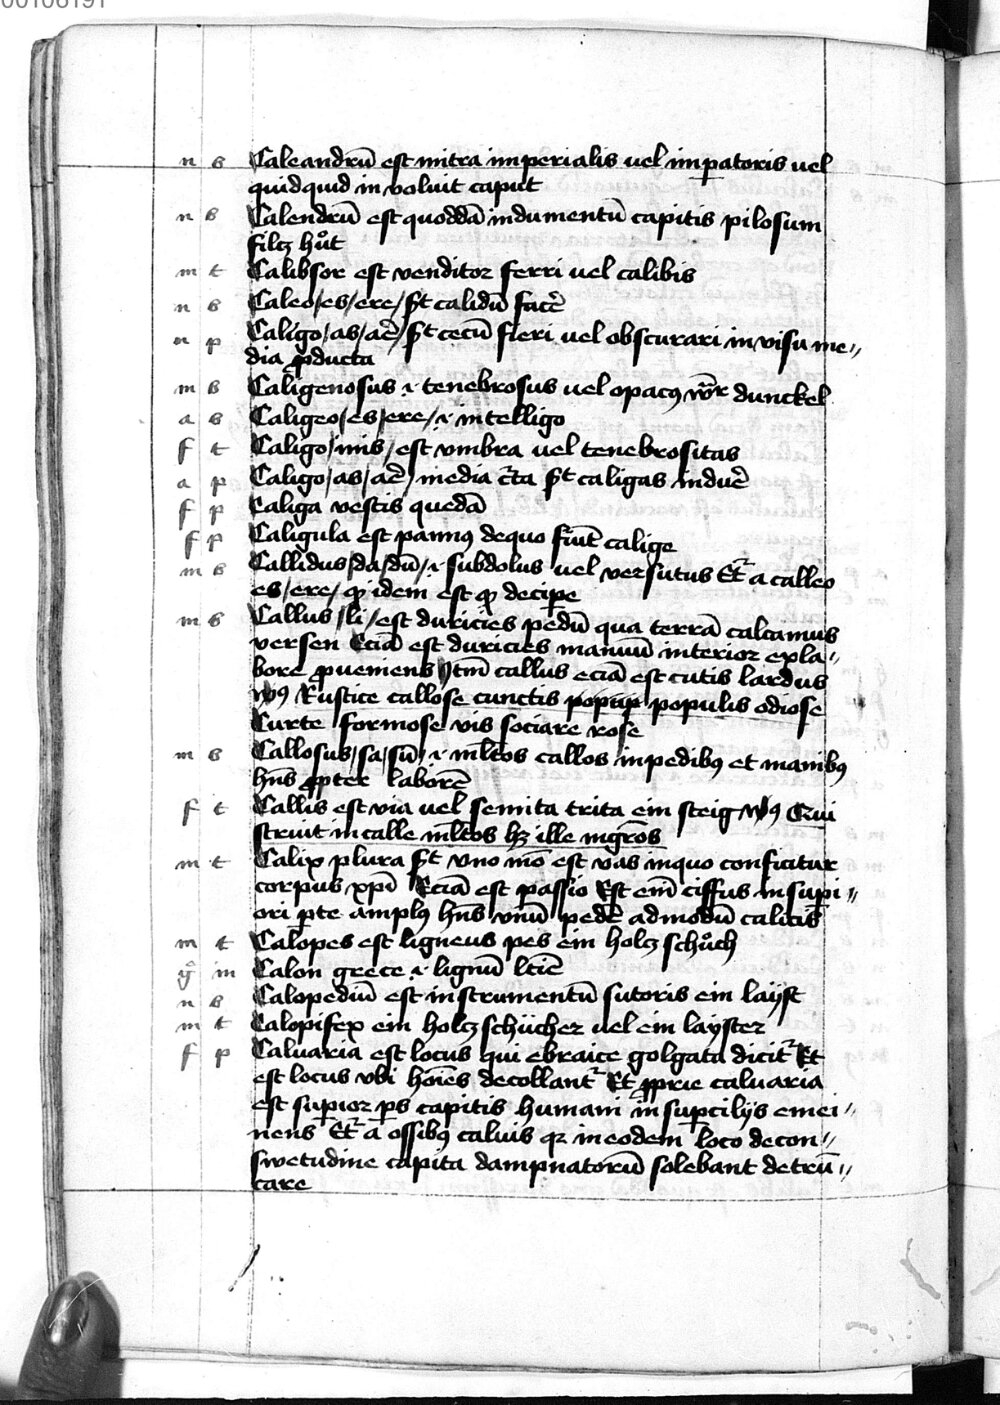 00106191
n b Caleandrū est mitra imperialis uel imꝑatoris uel
quidquid in voluit caput
n b Calendrū est quoddā indumentū capitis pilosum
filcz hůt
m t Calibsor est venditor ferri uel calibis
n b Caleo/es/ere/ p̄t calidū facē
n p Caligo/as/aē/ p̄t cecū fieri uel obscurari in visu me„
dia ꝓducta
m b Caligenosus .i. tenebrosus uel opacꝰ dunckel
a b Caligeo/es/ere/ .i. intelligo
f t Caligo/inis/ est vmbra uel tenebrositas
a p Caligo/as/aē/ media c̄ta p̄t caligas induē
f p Caliga vestis quedā
f p Caligula est pannꝰ dequo fiūt calige
m b Callidus/da/dū/ .i. subdolus uel versutus Et̄ a calleo
es/ere/ qͥ idem est qͥ deciꝑe
m b Callus/li/ est duricies pedū qua terrā calcamus
versen Eciā est duricies manuū interior ex la„
bore ꝓueniens Itm̄ callus eciā est cutis lardus
vꝰ Rustice callose cunctis populis odiose
Curte formose vis sociare rose
m b Callosus/sa/sū/ .i. ml̄tos callos in pedibꝰ et manibꝰ
hn̄s ꝓpter laborē
f t Callis est via uel semita trita ein steig vꝰ Qui
struit in calle ml̄tos hꝫ ille mgr̄os
m t Calix plura p̄t vno mō est vas inquo conficitur
corpus xp̄i Eciā est passio Est em̄ ciffus in suꝑi„
ori ꝑte amplꝰ hn̄s vnū pedē admodū calicis
m t Calopes est ligneus pes ein holczschůch
g̊ m Calon grece .i. lignū ltīe
n b Calopediū est instrumentū sutoris ein laÿst
m t Calopifex ein holczschücher uel ein laÿster
f p Caluaria est locus qui ebraice golgata dicit᷑ Et
est locus vbi hoīes decollant᷑ Et ꝓprie caluaria
est suꝑior ꝑs capitis humani in suꝑcilÿs emei„
nens Et̄ a ossibꝰ caluis qꝛ in eodem loco de con„
swetudine capita dampnatorū solebant detrū„
care